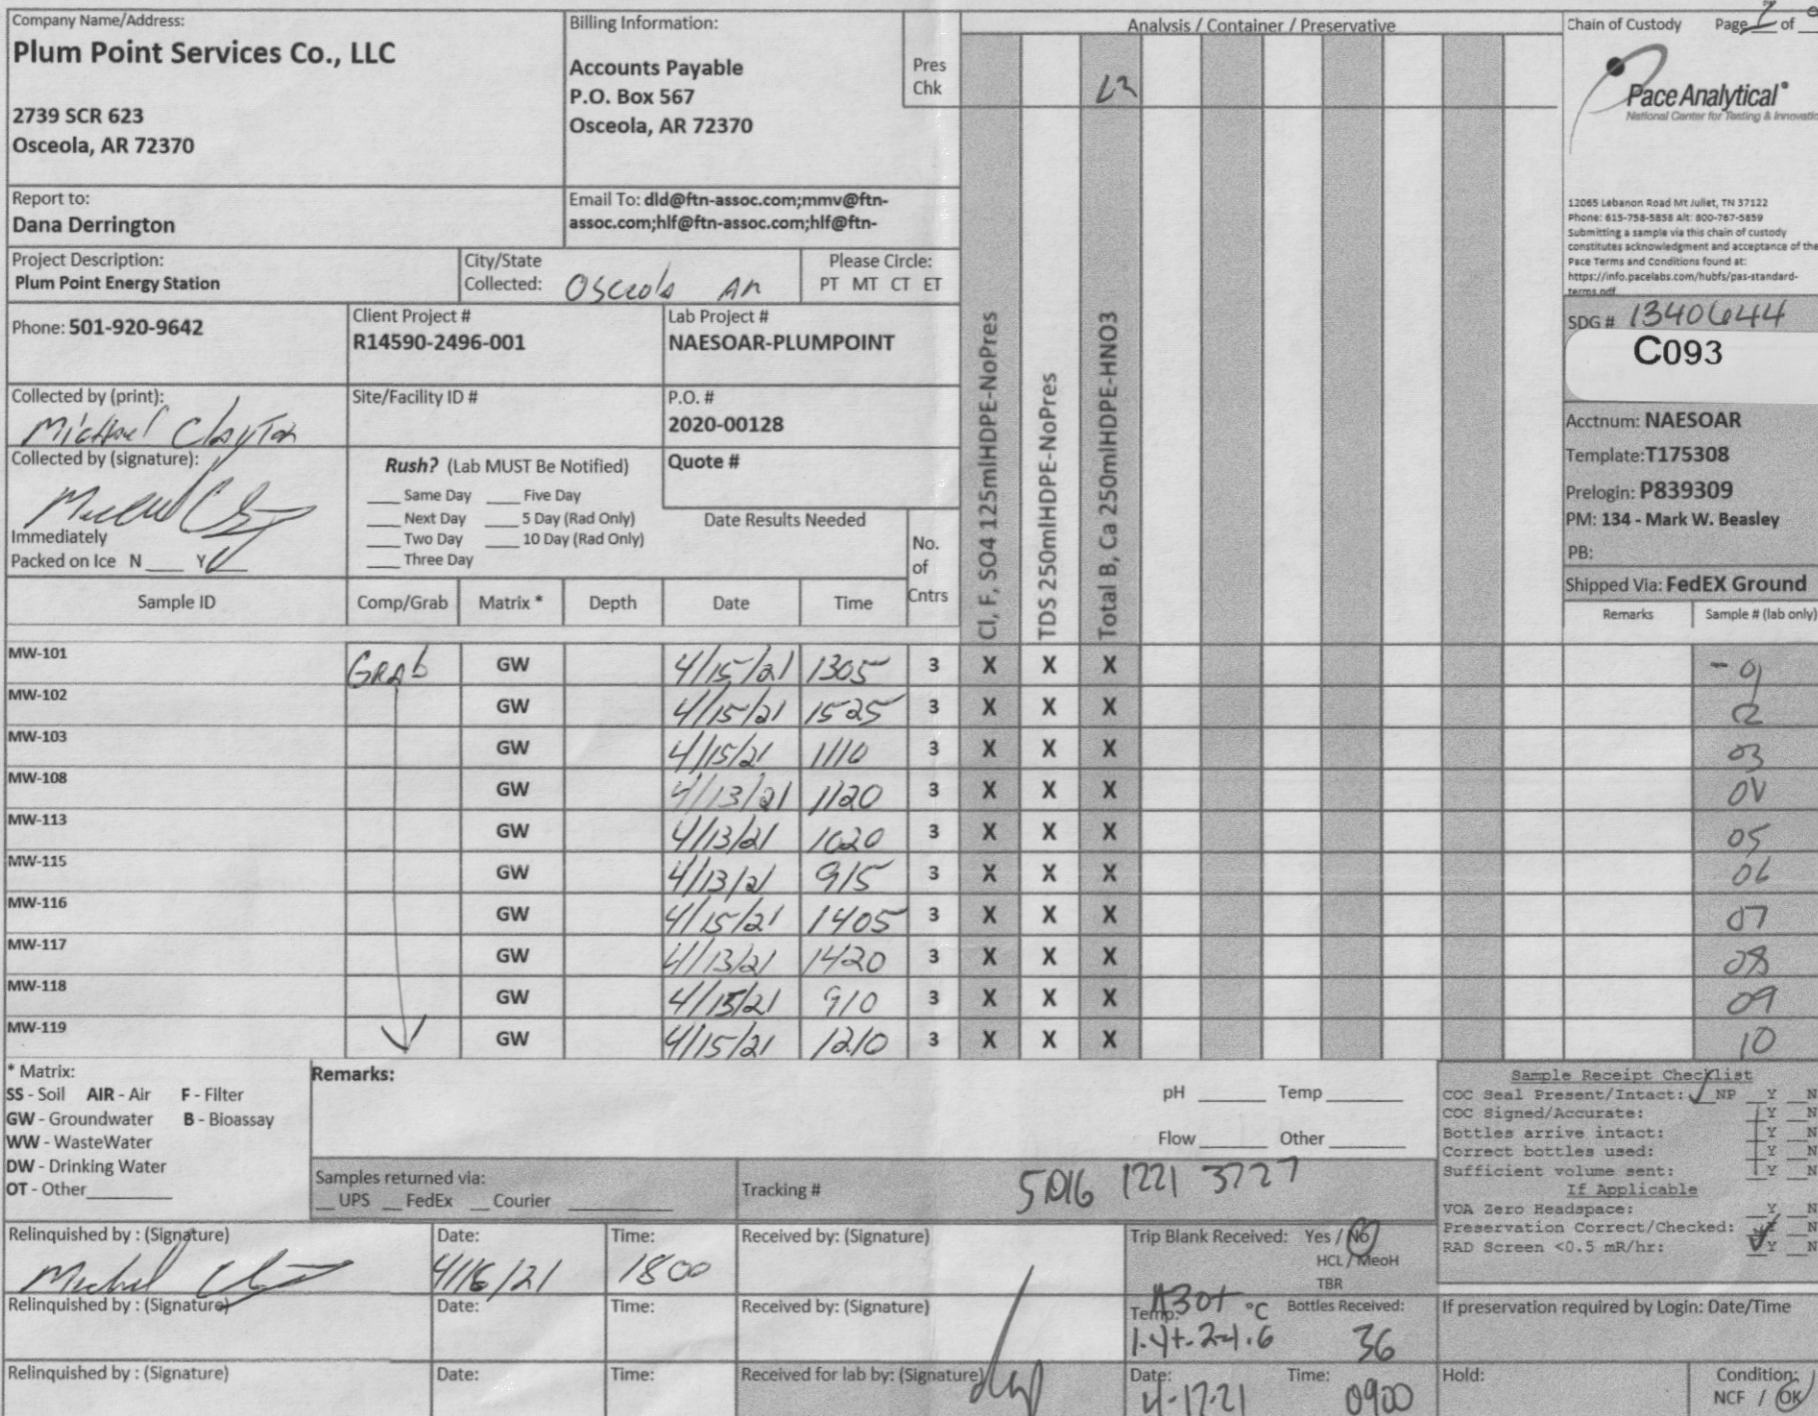 Company Name/Address:
Plum Point Services Co., LLC
2739 SCR 623
Osceola, AR 72370
Billing Information:
Accounts Payable
P.O. Box 567
Osceola, AR 72370
Pres
Chk
Analysis / Container / Preservative
Chain of Custody Page of
Pace Analytical®
National Center for Testing & Innovatio
12065 Lebanon Road Mt Juliet, TN 37122
Phone: 615-758-5858 Alt: 800-767-5859
Submitting a sample via this chain of custody
constitutes acknowledgment and acceptance of the
Pace Terms and Conditions found at:
https://info.pacelabs.com/hubfs/pas-standard-
terms.pdf
Report to:
Dana Derrington
Email To: dld@ftn-assoc.com;mmv@ftn-
assoc.com;hlf@ftn-assoc.com;hlf@ftn-
Project Description:
Plum Point Energy Station
City/State
Collected: Osceola Ar
Please Circle:
PT MT CT ET
Phone: 501-920-9642
Client Project #
R14590-2496-001
Lab Project #
NAESOAR-PLUMPOINT
Collected by (print):
Michael Clayton
Site/Facility ID #
P.O. #
2020-00128
Collected by (signature):
Immediately
Packed on Ice N ___ Y ___
Rush? (Lab MUST Be Notified)
___ Same Day ___ Five Day
___ Next Day ___ 5 Day (Rad Only)
___ Two Day ___ 10 Day (Rad Only)
___ Three Day
Quote #
Date Results Needed
No.
of
Cntrs
Cl, F, SO4 125mlHDPE-NoPres
TDS 250mlHDPE-NoPres
Total B, Ca 250mlHDPE-HNO3
SDG # 1340644
C093
Acctnum: NAESOAR
Template:T175308
Prelogin: P839309
PM: 134 - Mark W. Beasley
PB:
Shipped Via: FedEX Ground
Sample ID Comp/Grab Matrix * Depth Date Time Remarks Sample # (lab only)
MW-101 Grab GW 4/15/21 1305 3 X X X -01
MW-102 GW 4/15/21 1525 3 X X X 02
MW-103 GW 4/15/21 1110 3 X X X 03
MW-108 GW 4/13/21 1120 3 X X X 04
MW-113 GW 4/13/21 1020 3 X X X 05
MW-115 GW 4/13/21 915 3 X X X 06
MW-116 GW 4/15/21 1405 3 X X X 07
MW-117 GW 4/13/21 1420 3 X X X 08
MW-118 GW 4/15/21 910 3 X X X 09
MW-119 GW 4/15/21 1210 3 X X X 10
* Matrix:
SS - Soil AIR - Air F - Filter
GW - Groundwater B - Bioassay
WW - WasteWater
DW - Drinking Water
OT - Other
Remarks:
pH ___ Temp ___
Flow ___ Other ___
Samples returned via:
__ UPS __ FedEx __ Courier
Tracking # 5016 1221 3727
Sample Receipt Checklist
COC Seal Present/Intact: NP Y N
COC Signed/Accurate: Y N
Bottles arrive intact: Y N
Correct bottles used: Y N
Sufficient volume sent: Y N
If Applicable
VOA Zero Headspace: Y N
Preservation Correct/Checked: Y N
RAD Screen <0.5 mR/hr: Y N
Relinquished by : (Signature)
Date:
4/16/21
Time:
1800
Received by: (Signature)
Trip Blank Received: Yes / No
HCL / MeoH
TBR
Relinquished by : (Signature)
Date:
Time:
Received by: (Signature)
Temp: °C
Bottles Received:
36
If preservation required by Login: Date/Time
Relinquished by : (Signature)
Date:
Time:
Received for lab by: (Signature)
Date:
4-17-21
Time:
0900
Hold:
Condition:
NCF / OK